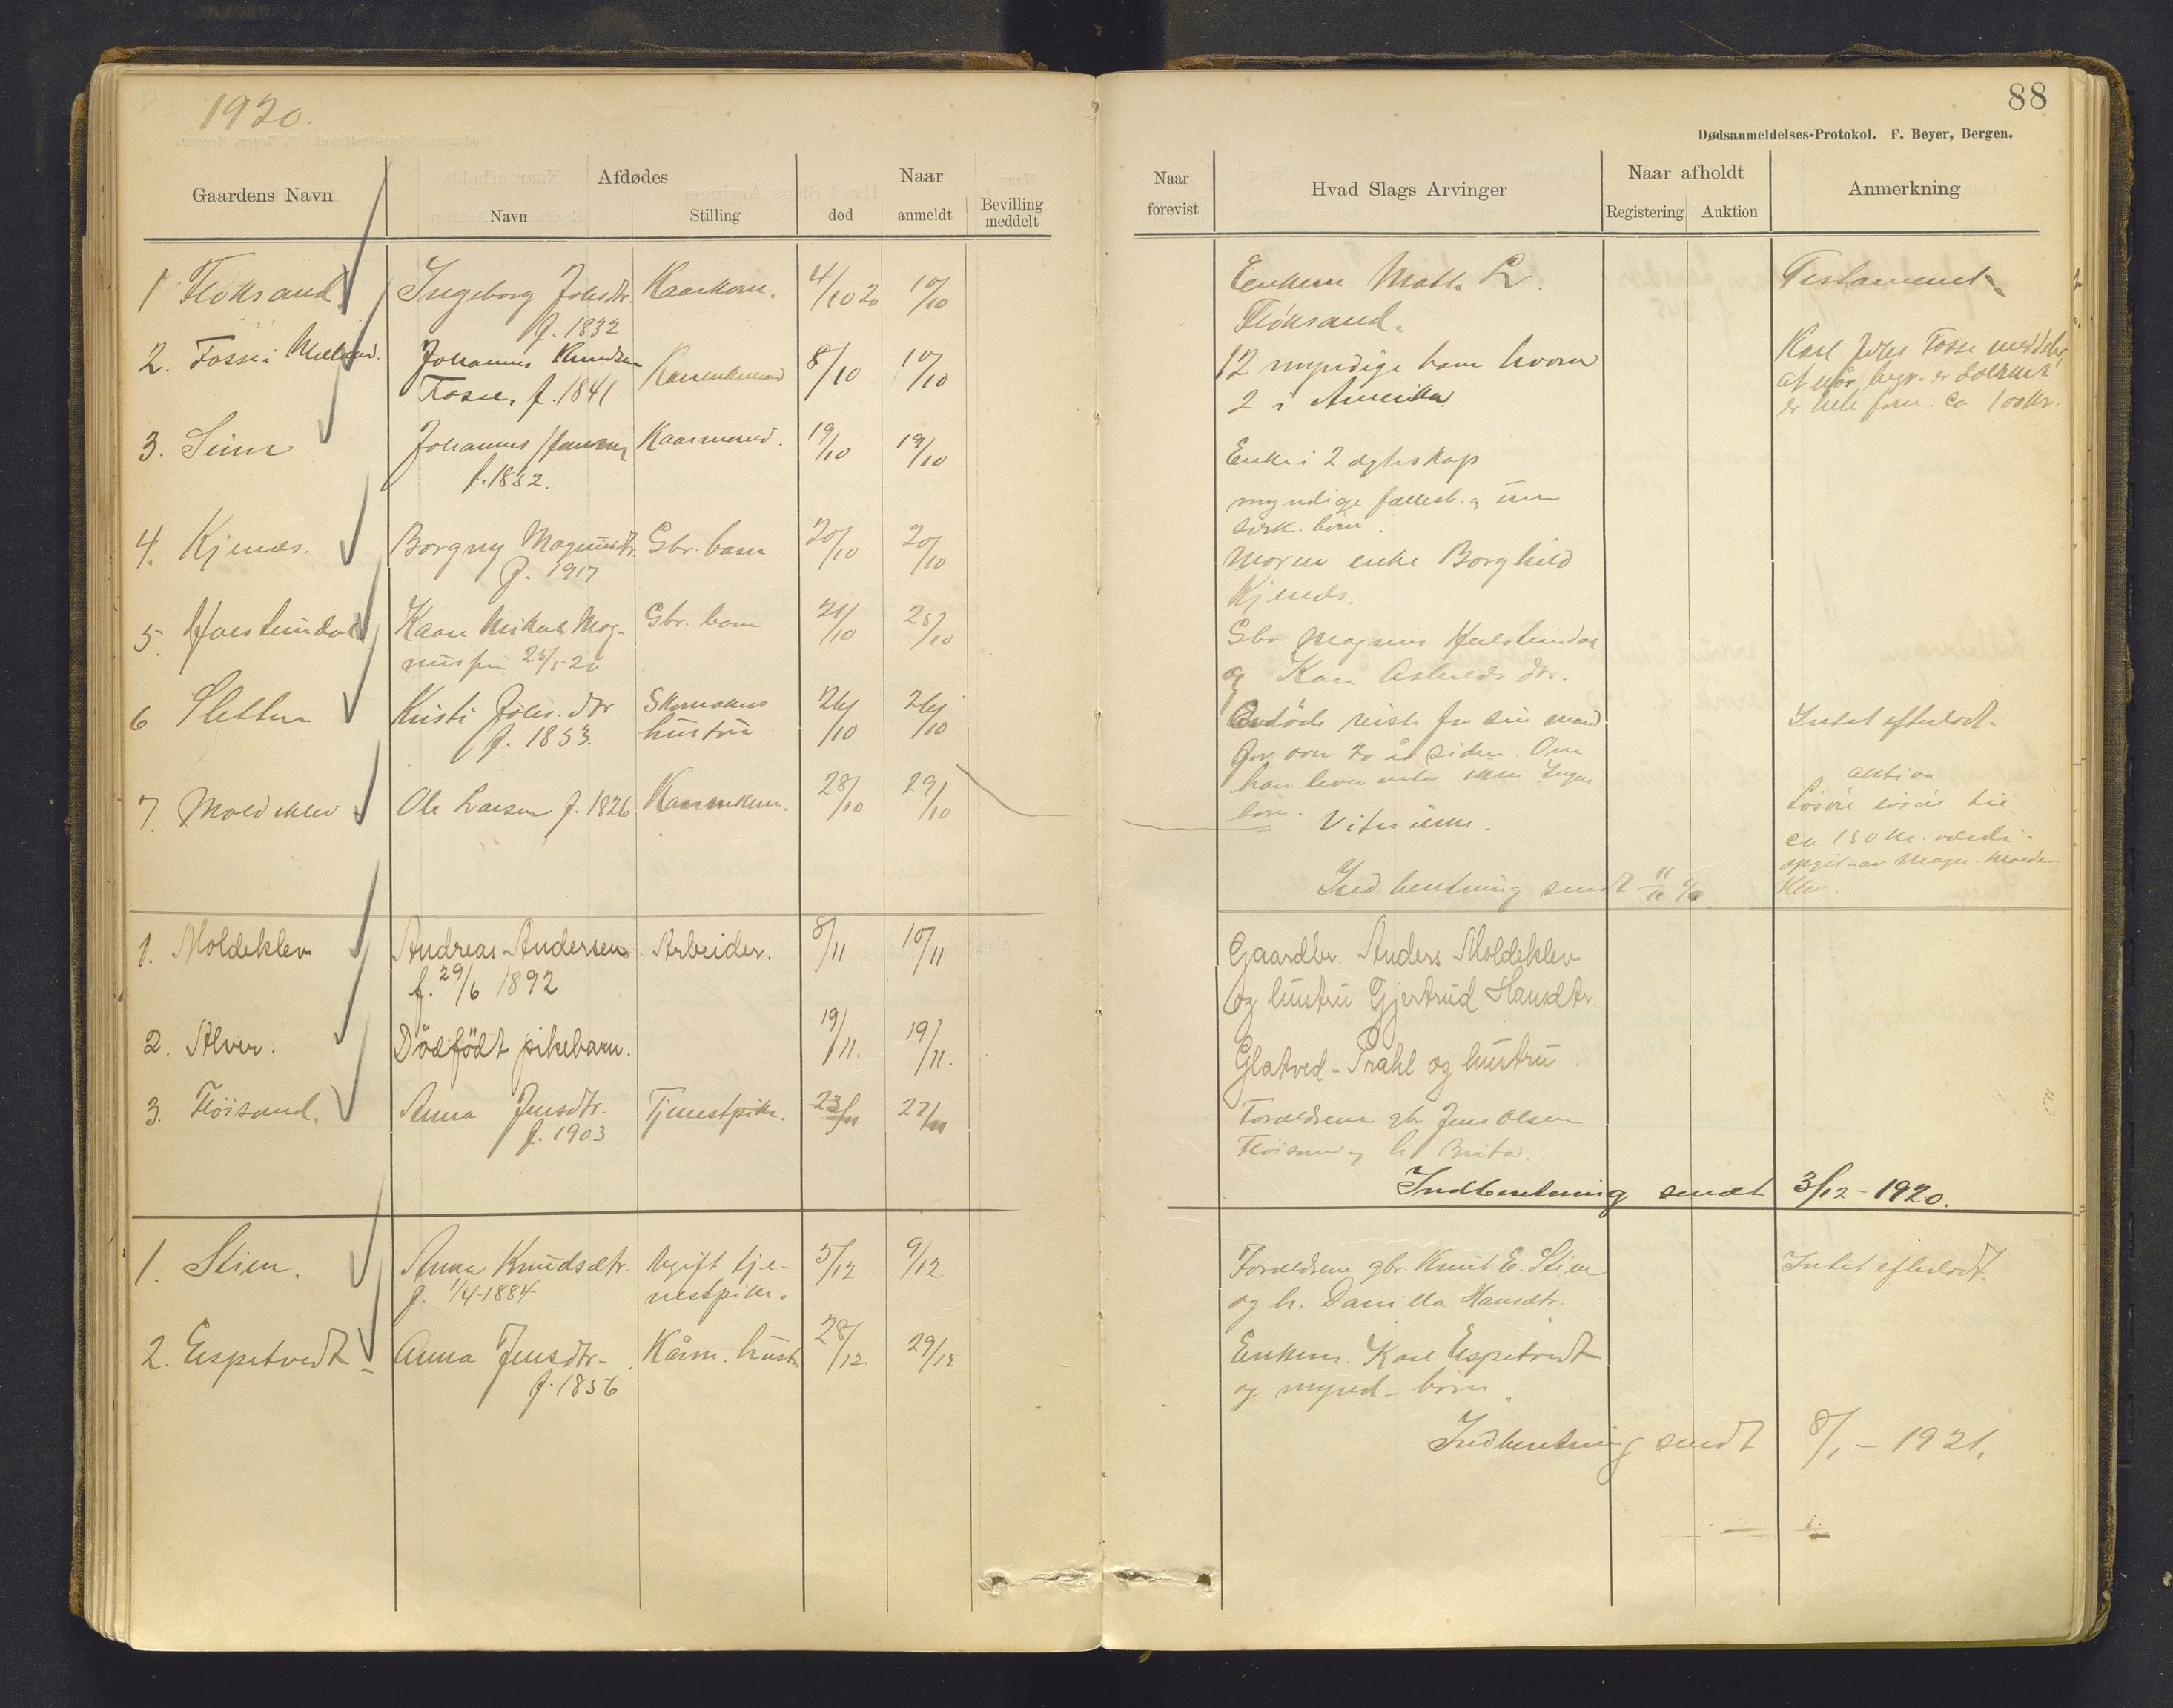 1920.
88
Dødsanmeldelses-Protokol. F. Beyer, Bergen.
Gaardens Navn
Afdødes
Navn
Stilling
Naar
død
anmeldt
Bevilling
meddelt
Naar
forevist
Hvad Slags Arvinger
Naar afholdt
Registering
Auktion
Anmerkning
1 Fløksand Ingeborg Johsdtr. Kaarkone. 4/10 20 10/10 Enkem Math L. Testament.
f. 1832 Fløksand.
2. Fosse i Johannes Knudsen 8/10 10/10 12 myndige barn hvorav Karl Johs Fosse meddeler
Fosse, f. 1841 2 i Amerika at
er hele form. ca 100 kr.
3. Seim Johannes Kaarmand. 19/10 19/10 Enke i 2 egteskap
f. 1832. myndige fællesb. og
særk. børn.
4. Kjenes. Borgny Magnusdtr. Gbr. barn 20/10 20/10 Moren enke Borghild
f. 1917 Kjenes.
5. Kaare Mikal Mag- Gbr. barn 21/10 25/10 Gbr Magnus
nussen 25/5-20 og Kari dtr.
6 Sletten Kristi Johs. dtr Skomakers 26/10 26/10 Avdøde reiste fra sin mand Intet efterladt.
f. 1853. hustru for over 20 år siden. Om
han lever vites ikke Ingen
børn.
7. Moldeklev Ole Larsen f. 1826 28/10 29/10 Vites ikke. Løsøre til
ca 150 kr. verdi
opgit av Magn. Molde-
klev.
Indberetning sendt 11/11
1. Moldeklev Andreas Andersen Arbeider. 8/11 10/11 Gaardbr. Anders Moldeklev
f. 29/6 1892 og hustru Gjertrud Hansdtr.
2. Alver. Dödfödt pikebarn. 19/11. 19/11. Glatved-Prahl og hustru.
3. Flöisand. Anna Jensdtr. Tjenestpike. 23/11 27/11 Foreldrene gbr Jens Olsen
f. 1903 og h Brita.
Indberetning sendt 3/12-1920.
1. Stien. Anna Knudsdtr. Ugift tje- 5/12 9/12 Foreldrene gbr. Knut E. Stien Intet efterladt.
f. 1/4-1884 nestpike. og h. Danilla Hansdtr.
2. Espetvedt Anna Jensdtr. Kårm. hustr. 28/12 29/12 Enkem. Karl Espetvedt
f. 1856 og mynd. børn.
Indberetning sendt 8/1-1921.